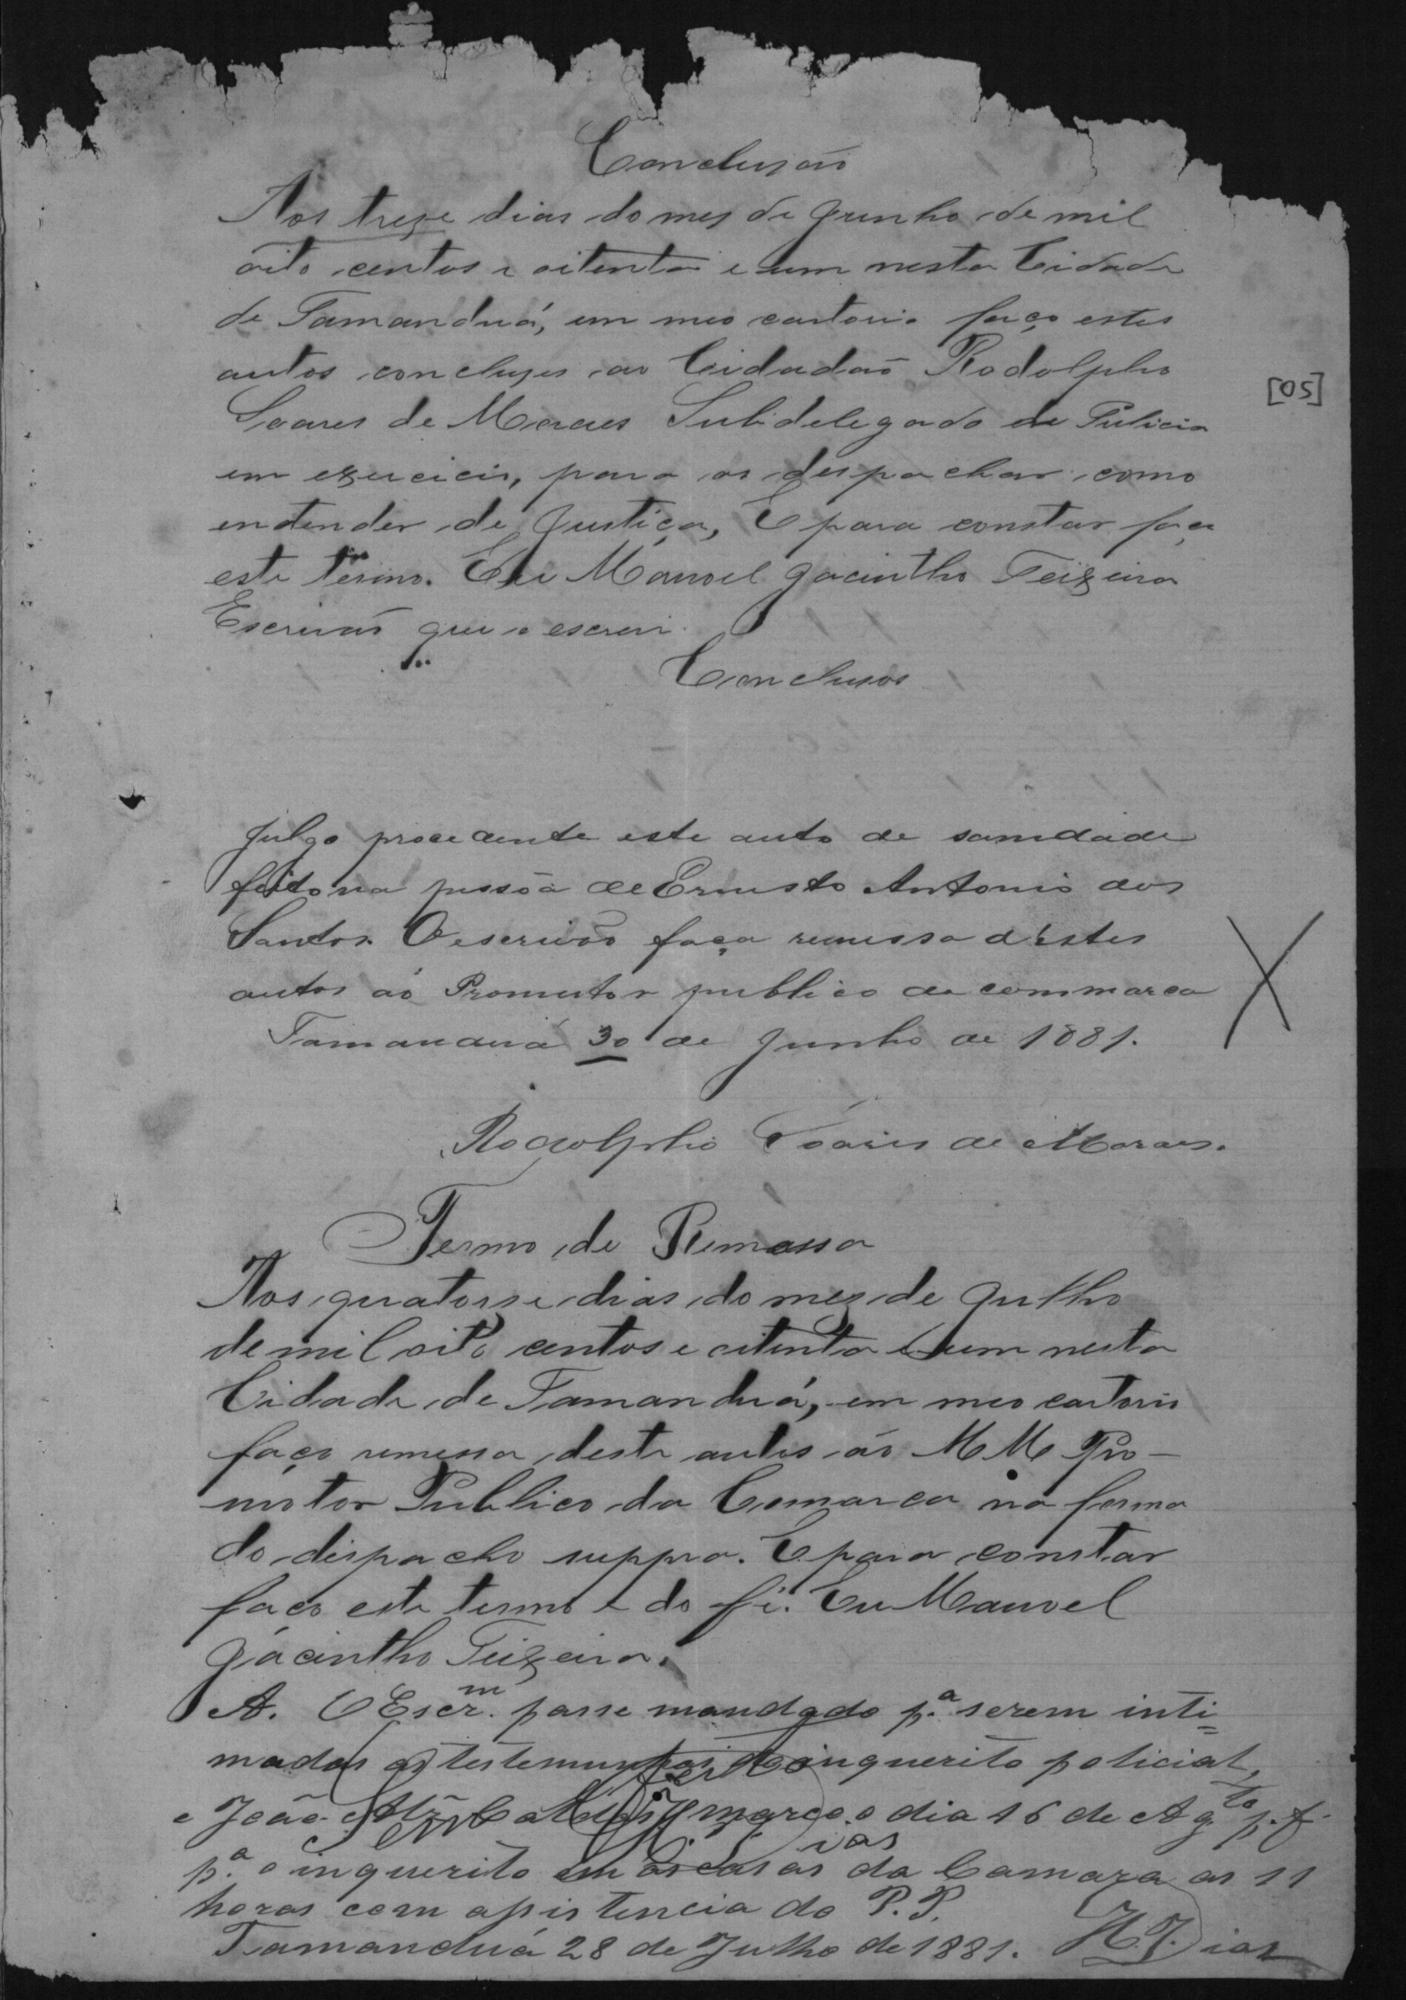 Conclusão
Aos treze dias do mez de Junho de mil
oito centos e oitenta e um nesta Cidade
de Tamanduá, em meo cartorio faço estes
autos concluzos ao Cidadão Rodolpho
[05]
Soares de Moraes Subdelegado de Policia
em exercicio, para os despachar como
entender de Justiça, E para constar faço
este termo. Eu Manoel Jacintho Teixeira
Escrivão que o escrevi
Conclusos
Julgo procedente este auto de sanidade
feito na pessôa de Ernesto Antonio dos
Santos. O escrivão faça remessa d'estes
autos áo Promutor publico da commarca
Tamanduá 30 de Junho de 1881.
Rodolpho Soares de Moraes.
Termo de Remessa
Aos quatorse dias do mez de Julho
de mil oito centos e oitenta e um nesta
Cidade de Tamanduá, em meo cartorio
faço remessa deste autos ao M M Pro-
motor Publico da Comarca na forma
do despacho suppra. E para constar
faço este termo e do fé. Eu Manoel
Jacintho Teixeira.
A. O Escr.m passe mandado p.a serem inti=
madas as testemunhas do inquerito policial,
e João marco o dia 16 de Ag.to p. f.
p.a o inquerito as casas da Camara as 11
horas com assistencia do P. P.
Tamanduá 28 de Julho de 1881. H. J. Dias